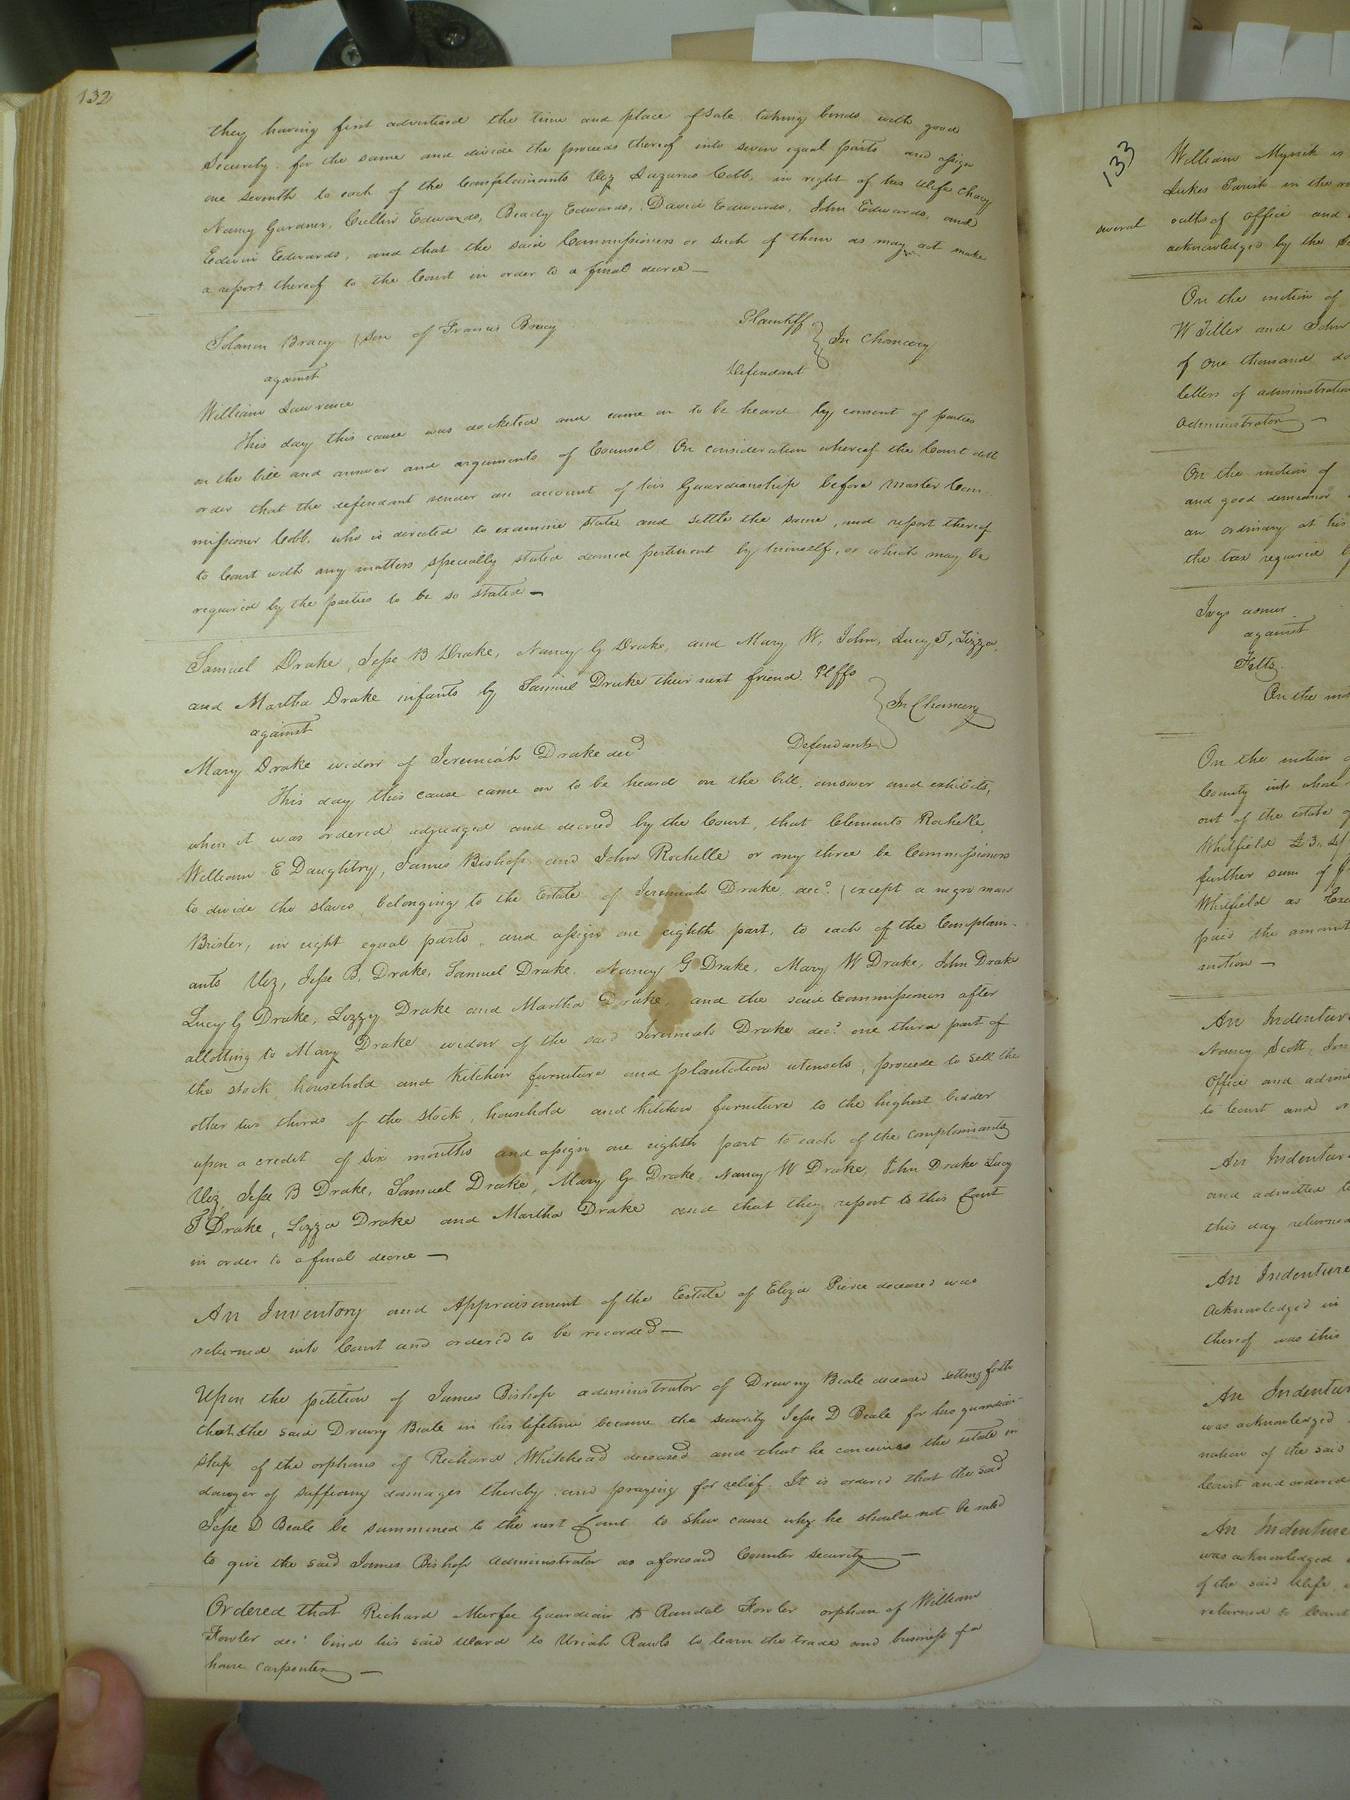 132
they having first advertised the time and place of sale taking bonds with good
Security for the same and divide the proceeds thereof into seven equal parts and assign
one seventh to each of the Complainants Viz Lazarus Cobb, in right of his Wife Chacy
Nancy Gardner, Cullin Edwards, Beady Edwards, David Edwards, John Edwards, and
Edwin Edwards, and that the said Commissioners or such of them as may act make
a report thereof to the Court in order to a final decree —
Solomon Bracy (son of Francis Bracy Plaintiff
against In Chancery
William Lawrence Defendant
This day this cause was docketed and came on to be heard by consent of parties
on the bill and answer and arguments of Counsel On consideration whereof the Court doth
order that the defendant render an account of his Guardianship before Master Com-
missioner Cobb, who is directed to examine state and settle the same, and report thereof
to Court with any matters specially stated deemed pertinent by himself, or which may be
required by the parties to be so stated —
Samuel Drake, Jesse B Drake, Nancy G Drake, and Mary W, John, Lucy T, Lizza,
and Martha Drake infants by Samuel Drake their next friend Plffs
against In Chancery
Mary Drake widow of Jeremiah Drake decd Defendants
This day this cause came on to be heard on the bill, answer and exhibits,
when it was ordered adjudged and decreed by the Court, that Clements Rochelle,
William E Daughtry, James Bishop and John Rochelle or any three be Commissioners
to divide the slaves belonging to the Estate of Jeremiah Drake decd (except a negro man
Brister, in eight equal parts, and assign one eighth part, to each of the Complain-
ants Viz, Jesse B. Drake, Samuel Drake, Nancy G Drake, Mary W Drake, John Drake
Lucy G Drake, Lizzy Drake and Martha Drake, and the said Commissioners after
allotting to Mary Drake widow of the said Jeremiah Drake decd one third part of
the stock, household and kitchen furniture and plantation utensils, proceede to sell the
other two thirds of the stock, household and kitchen furniture to the highest bidder
upon a credit of six months and assign one eighth part to each of the complainants
Viz, Jesse B Drake, Samuel Drake, Mary G Drake, Nancy W Drake, John Drake Lucy
T Drake, Lizza Drake and Martha Drake and that they report to this Court
in order to a final decree —
An Inventory and Appraisement of the Estate of Eliza Pierce deceased was
returned into Court and ordered to be recorded —
Upon the petition of James Bishop administrator of Drewry Beale deceased setting forth
that the said Drewry Beale in his lifetime became the security Jesse D Beale for his guardian-
ship of the orphans of Richard Whitehead deceased and that he conceives the estate in
danger of suffering damages thereby and praying for relief. It is ordered that the said
Jesse D Beale be summoned to the next Court to shew cause why he should not be ruled
to give the said James Bishop administrator as aforesaid Counter security —
Ordered that Richard Murfee Guardian to Randal Fowler orphan of William
Fowler decd bind his said Ward to Uriah Rawls to learn the trade and business of a
house carpenter —
133
William Myrick is
Lukes Parish in the
several oaths of office and
acknowledged by the
On the motion of
W Tiller and John
of one thousand
letters of administration
administrator —
On the motion of
and good demeanor
an ordinary at his
the tax required
Ivys admor
against
Felts
On the
On the motion
County into
out of the estate
Whitfield £3.
further sum of
Whitfield as
paid the amount
motion —
An Indenture
Nancy Scott,
Office and
to Court and
An Indenture
and admitted
this day returned
An Indenture
Acknowledged in
thereof was this
An Indenture
was acknowledged
nation of the said
Court and ordered
An Indenture
was acknowledged
of the said Wife
returned to Court